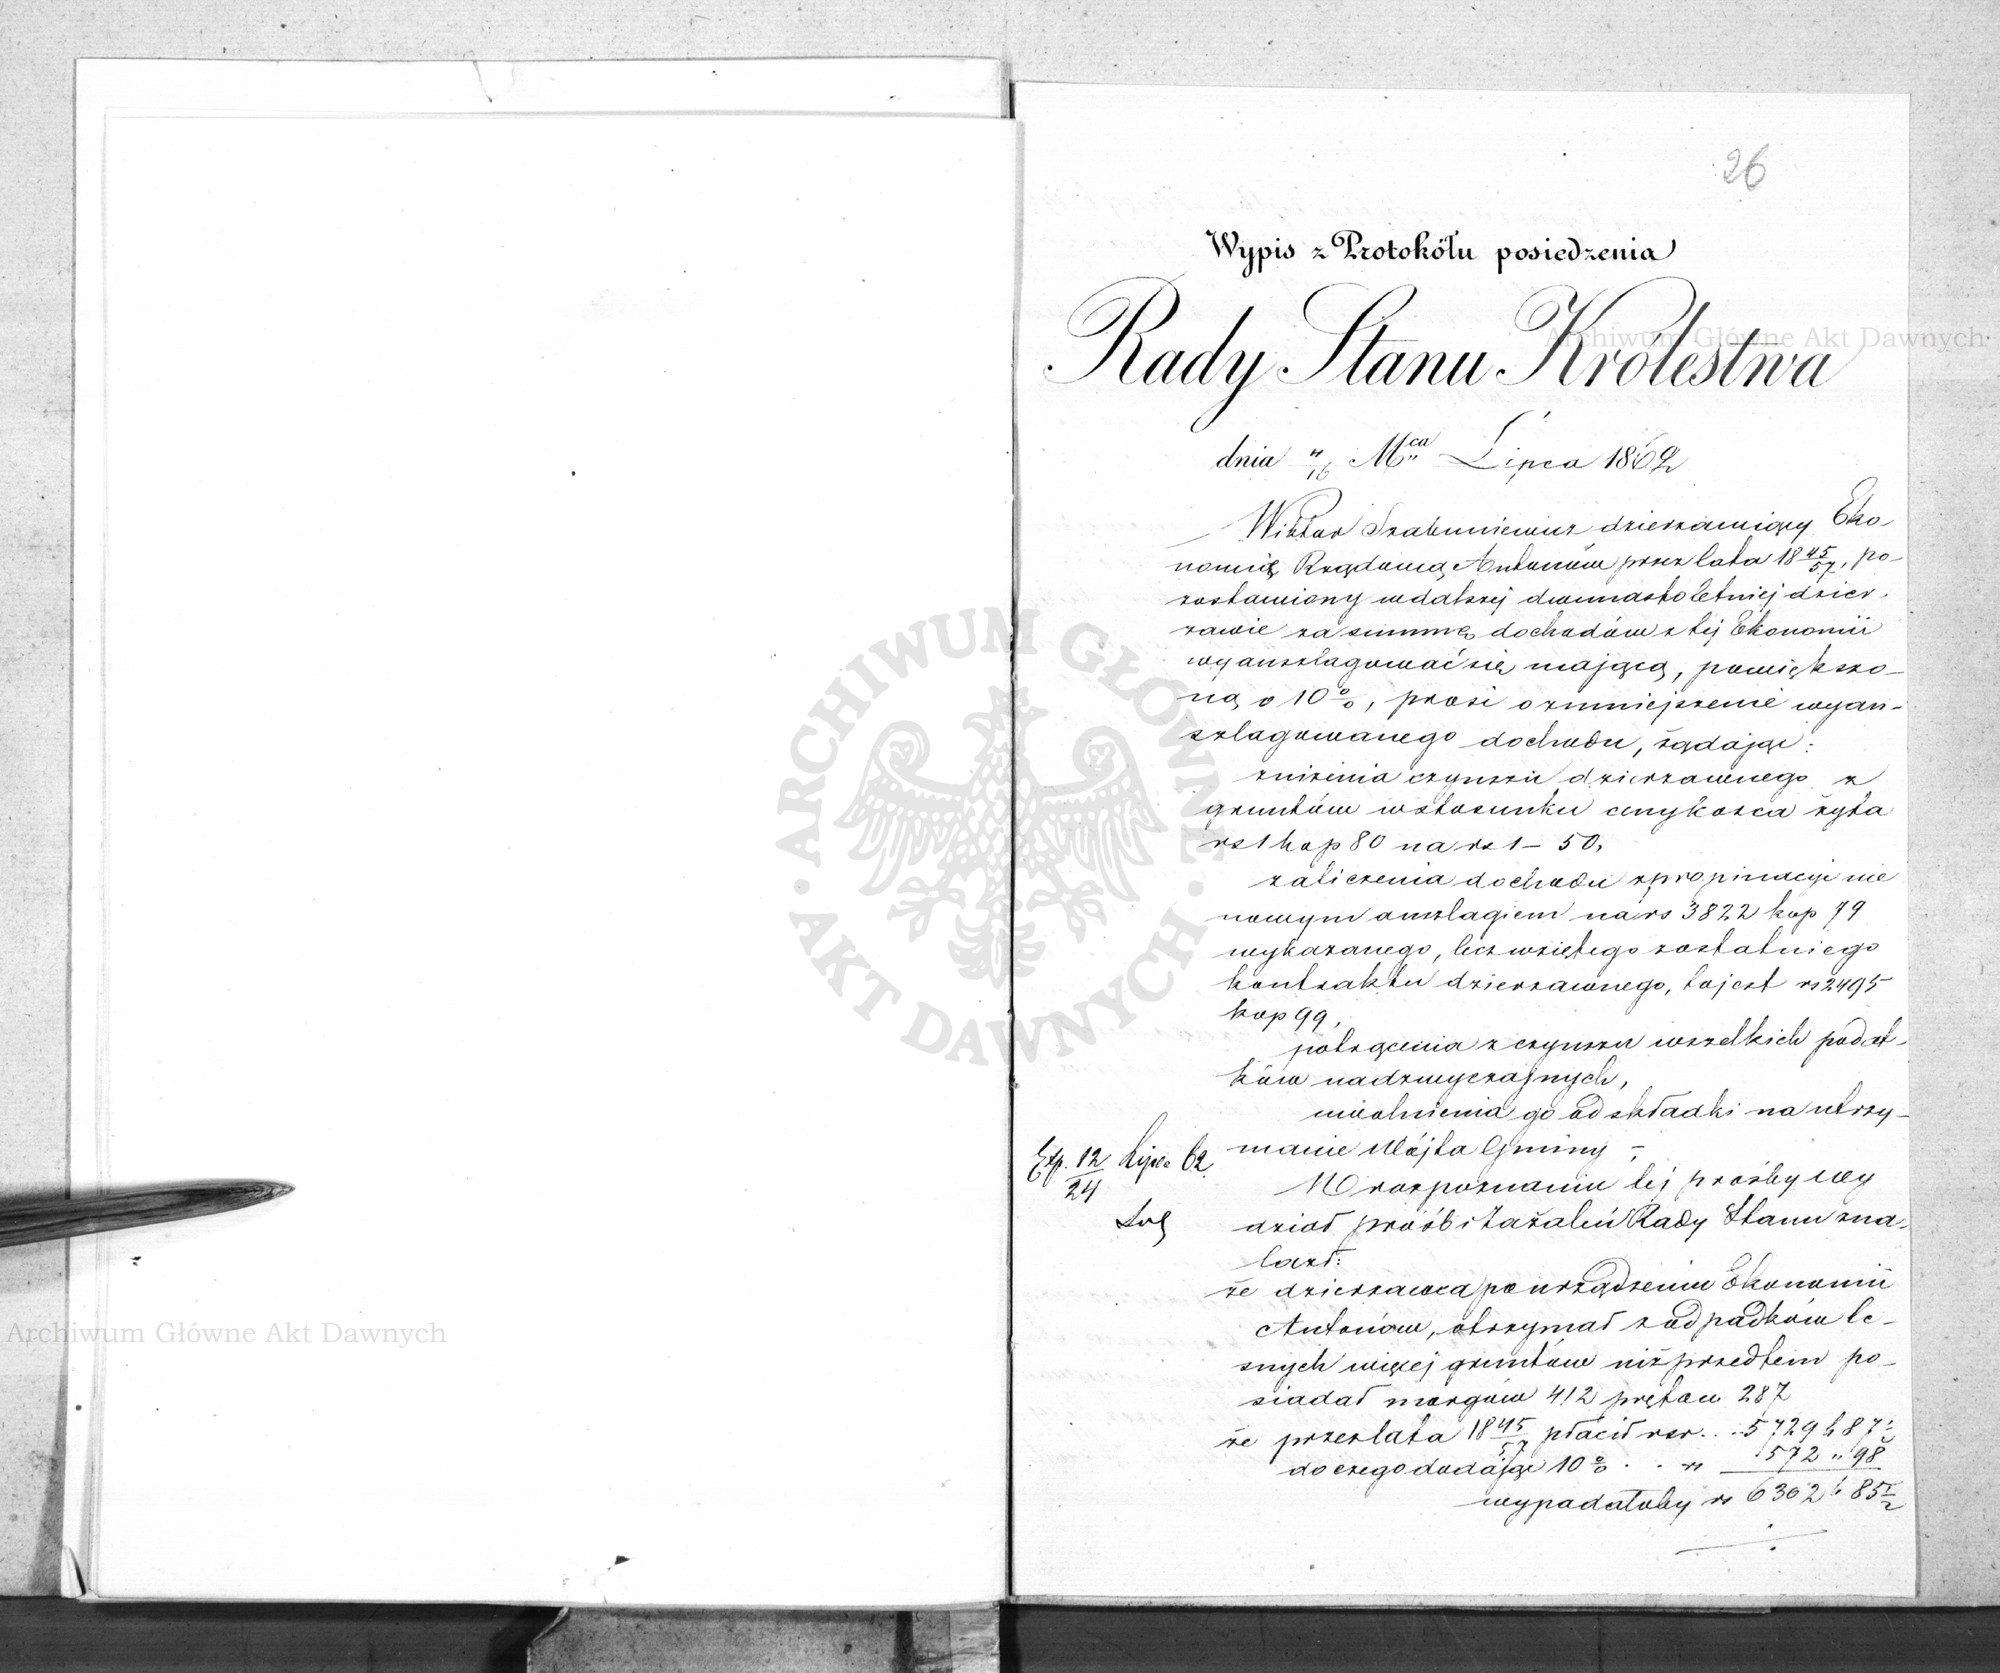 26
Wypis z Protokółu posiedzenia
Rady Stanu Królestwa
dnia "/16 Mca Lipca 1862
Wiktor dzierżawiący Eko-
nomię Rządową Antonów przez lata 18 45/57, po-
zostawiony w dalszej dwunastoletniej dzier-
żawie za summę dochodów z tej Ekonomii
wyanszlagować się mającą, powiększo-
ną o 10 %, prosi o zmniejszenie wyan-
szlagowanego dochodu, żądając:
zniżenia czynszu dzierżawnego z
gruntów w stosunku ćwykorca żyta
rs 1 kop 80 na rs 1 – 50,
zaliczenia dochodu z propinacyi nie
nowym anszlagiem na rs 3822 kop 79
wykazanego, lecz wziętego z ostatniego
kontraktu dzierżawnego, to jest rs 2495
kop 99,
potrącenia z czynszu wszelkich podat-
ków nadzwyczajnych,
uwolnienia go od składki na utrzy-
manie Wójta Gminy –
Exp. 12/24 Lipca 62
W rozpoznaniu tej prośby wy
dział próśb i zażaleń Rady Stanu zna-
lazł:
że dzierżawca po urządzeniu Ekonomii
Antonów, otrzymał z odpadków le-
snych więcej gruntów niż przedtem po-
siadał morgów 412 prętow 287
że przez lata 18 45/57 płacił rsr . . . 5729 k 87 ½
do czego dodając 10 % . . " 572 " 98
wypadałoby rs 6302 k 85 ½
Archiwum Główne Akt Dawnych
Archiwum Główne Akt Dawnych
ARCHIWUM GŁÓWNE · AKT DAWNYCH ·